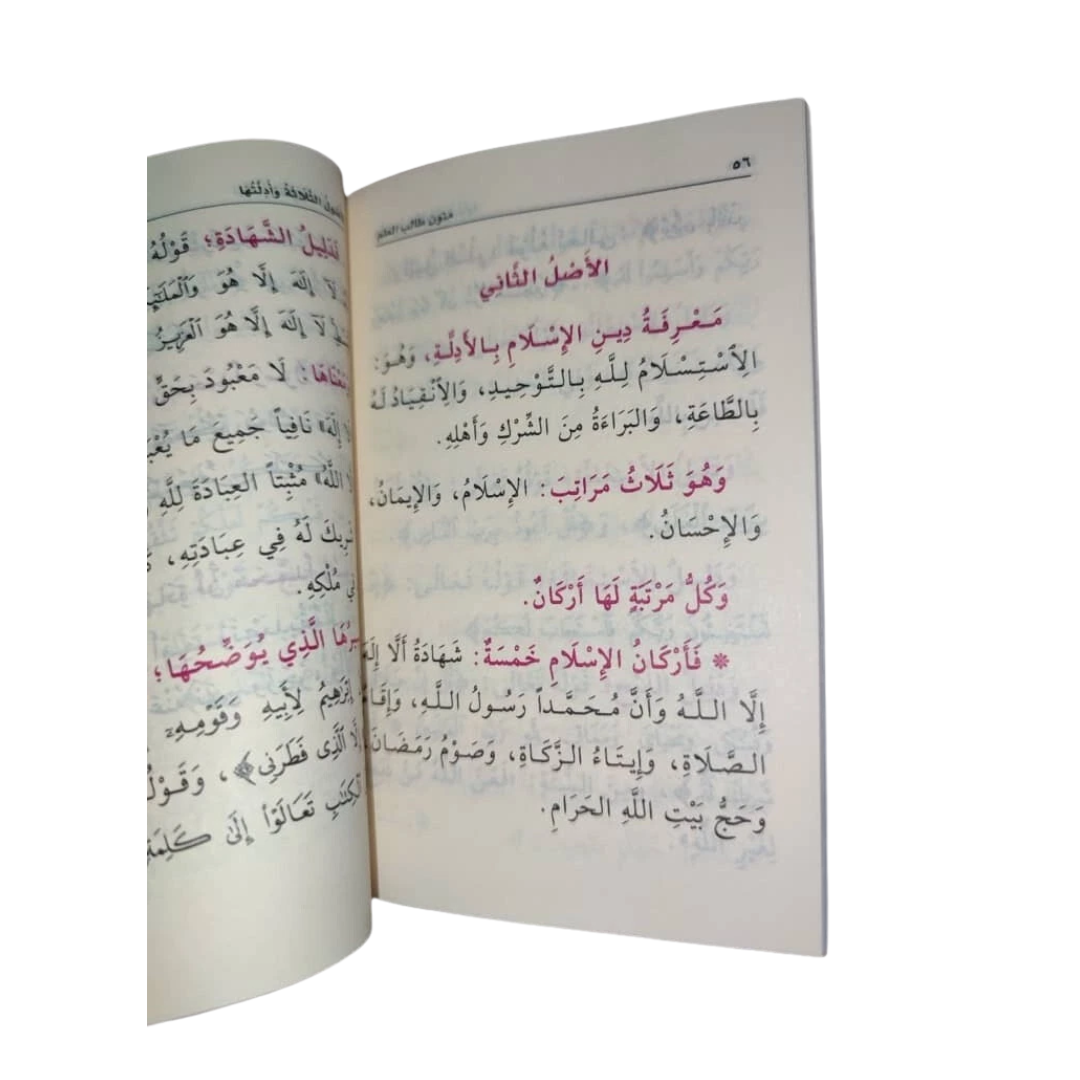 ٥٦
متون طالب العلم
الأَصْلُ الثَّانِي
مَعْرِفَةُ دِينِ الإِسْلَامِ بِالأَدِلَّةِ، وَهُوَ:
الِاسْتِسْلَامُ لِلَّهِ بِالتَّوْحِيدِ، وَالِانْقِيَادُ لَهُ
بِالطَّاعَةِ، وَالبَرَاءَةُ مِنَ الشِّرْكِ وَأَهْلِهِ.
وَهُوَ ثَلَاثُ مَرَاتِبَ: الإِسْلَامُ، وَالإِيمَانُ،
وَالإِحْسَانُ.
وَكُلُّ مَرْتَبَةٍ لَهَا أَرْكَانٌ.
* فَأَرْكَانُ الإِسْلَامِ خَمْسَةٌ: شَهَادَةُ أَلَّا إِلَهَ
إِلَّا اللَّهُ وَأَنَّ مُحَمَّداً رَسُولُ اللَّهِ، وَإِقَا
الصَّلَاةِ، وَإِيتَاءُ الزَّكَاةِ، وَصَوْمُ رَمَضَانَ،
وَحَجُّ بَيْتِ اللَّهِ الحَرَامِ.
الثَّلَاثَةُ وَأَدِلَّتُهَا
فَدَلِيلُ الشَّهَادَةِ؛ قَوْلُهُ
لَآ إِلَهَ إِلَّا هُوَ
لَآ إِلَهَ إِلَّا هُوَ ٱلْعَزِيزُ
لَا مَعْبُودَ بِحَقٍّ
إِلَهَ» نَافِياً جَمِيعَ مَا
اللَّهُ» مُثْبِتاً العِبَادَةَ لِلَّهِ
لَهُ فِي عِبَادَتِهِ،
مُلْكِهِ.
الَّذِي يُوَضِّحُهَا؛
لِأَبِيهِ وَقَوْمِهِۦٓ
ٱلَّذِى فَطَرَنِى﴾، وَقَوْلُ
تَعَالَوْا۟ إِلَىٰ